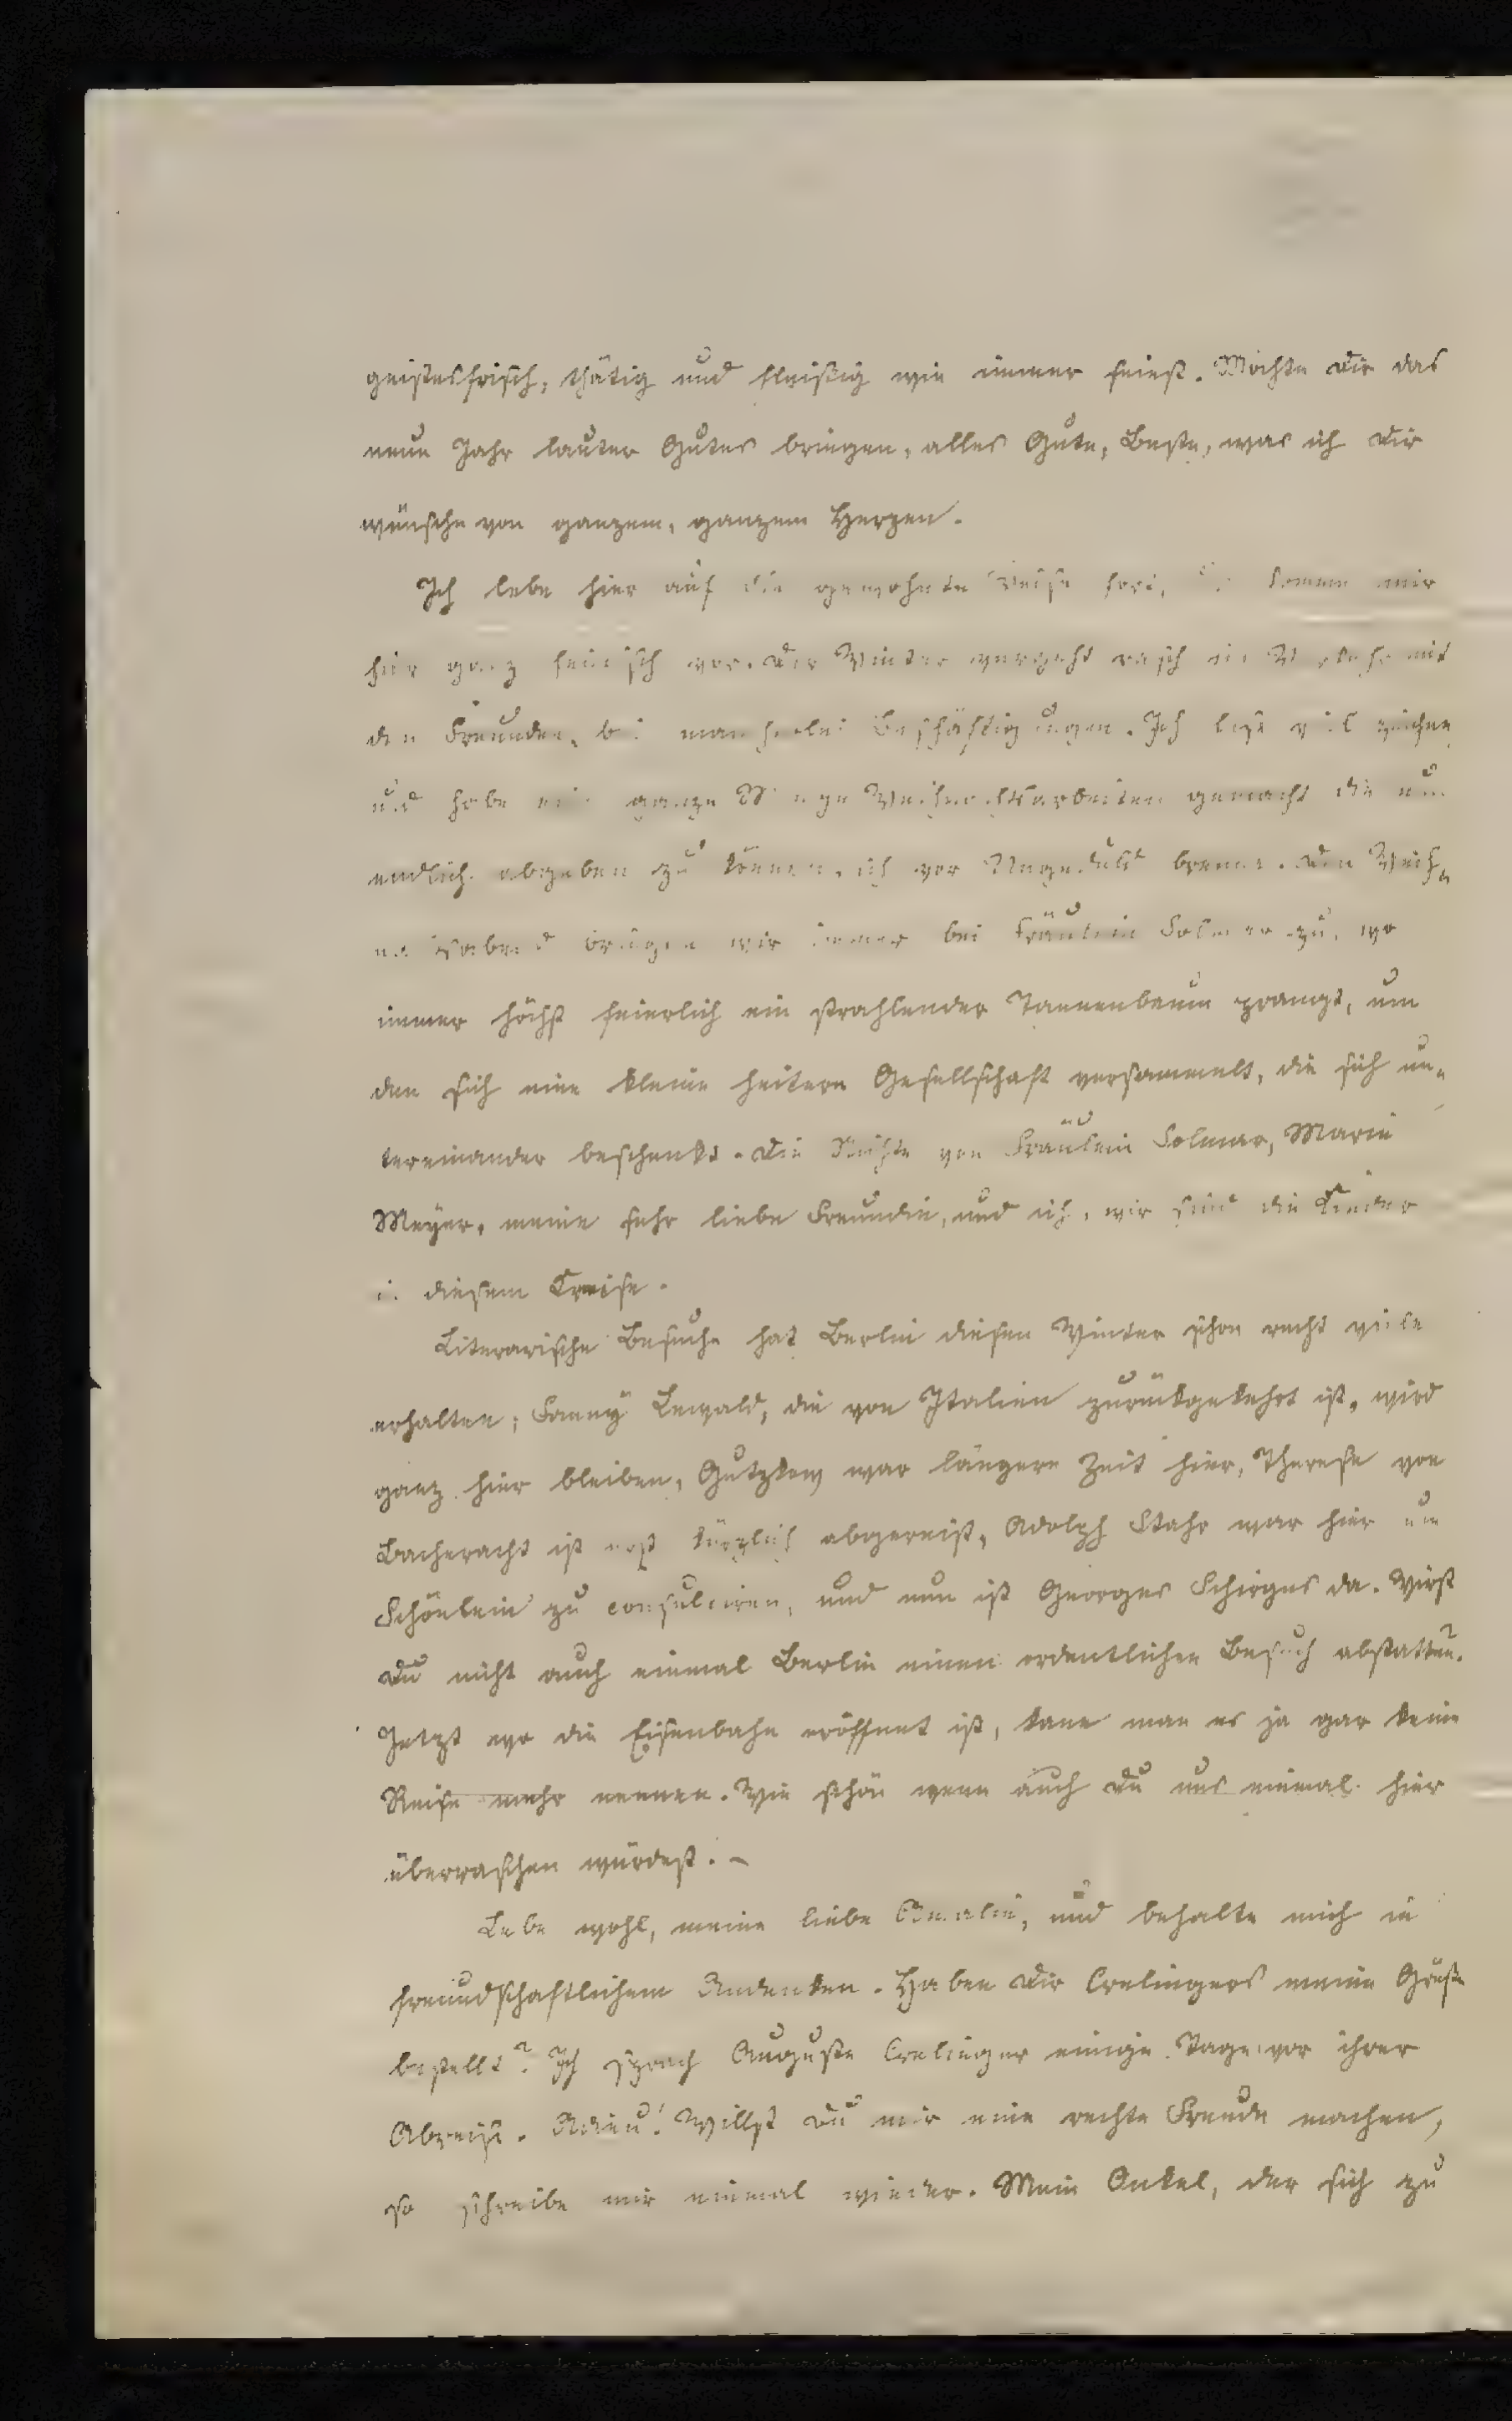 geistesfrisch, thätig und fleißig wie immer seiest. Möchte Dir das
neue Jahr lauter Gutes bringen, alles Gute, Beste, was ich Dir
wünsche von ganzem, ganzem Herzen.
Ich lebe hier auf die gewohnte Weise fort, komme mir
hier ganz heimisch vor. Der Winter vergeht rasch im Verkehr mit
den Freunden, bei mancherlei Beschäftigungen. Ich lese viel zeichne
und habe eine ganze Menge Weihnachtsarbeiten gemacht die nun
endlich abgeben zu können, ich vor Ungeduld brenne. Den Weih-
nachtsabend bringen wir immer bei Fräulein Solmar zu, wo
immer höchst feierlich ein strahlender Tannenbaum prangt, um
den sich eine kleine heitere Gesellschaft versammelt, die sich un-
tereinander beschenkt. Die Nichte von Fräulein Solmar, Marie
Meyer, meine sehr liebe Freundin, und ich, wir sind die Kinder
in diesem Kreise.
Literarische Besuche hat Berlin diesen Winter schon recht viele
erhalten; Fanny Lewald, die von Italien zurückgekehrt ist, wird
ganz hier bleiben, Gutzkow war längere Zeit hier, Therese von
Bacheracht ist erst kürzlich abgereist, Adolph Stahr war hier um
Schönlein zu consultiren, und nun ist Georges Schirges da. Wirst
Du nicht auch einmal Berlin einen ordentlichen Besuch abstatten?
Jetzt wo die Eisenbahn eröffnet ist, kann man es ja gar keine
Reise mehr nennen. Wie schön wenn auch Du uns einmal hier
überraschen würdest. –
Lebe wohl, meine liebe Amalie, und behalte mich in
freundschaftlichem Andenken. Haben Dir Crelingers meine Grüße
bestellt? Ich sprach Auguste Crelinger einige Tage vor ihrer
Abreise. Adieu! Willst Du mir eine rechte Freude machen,
so schreibe mir einmal wieder. Mein Onkel, der sich zu